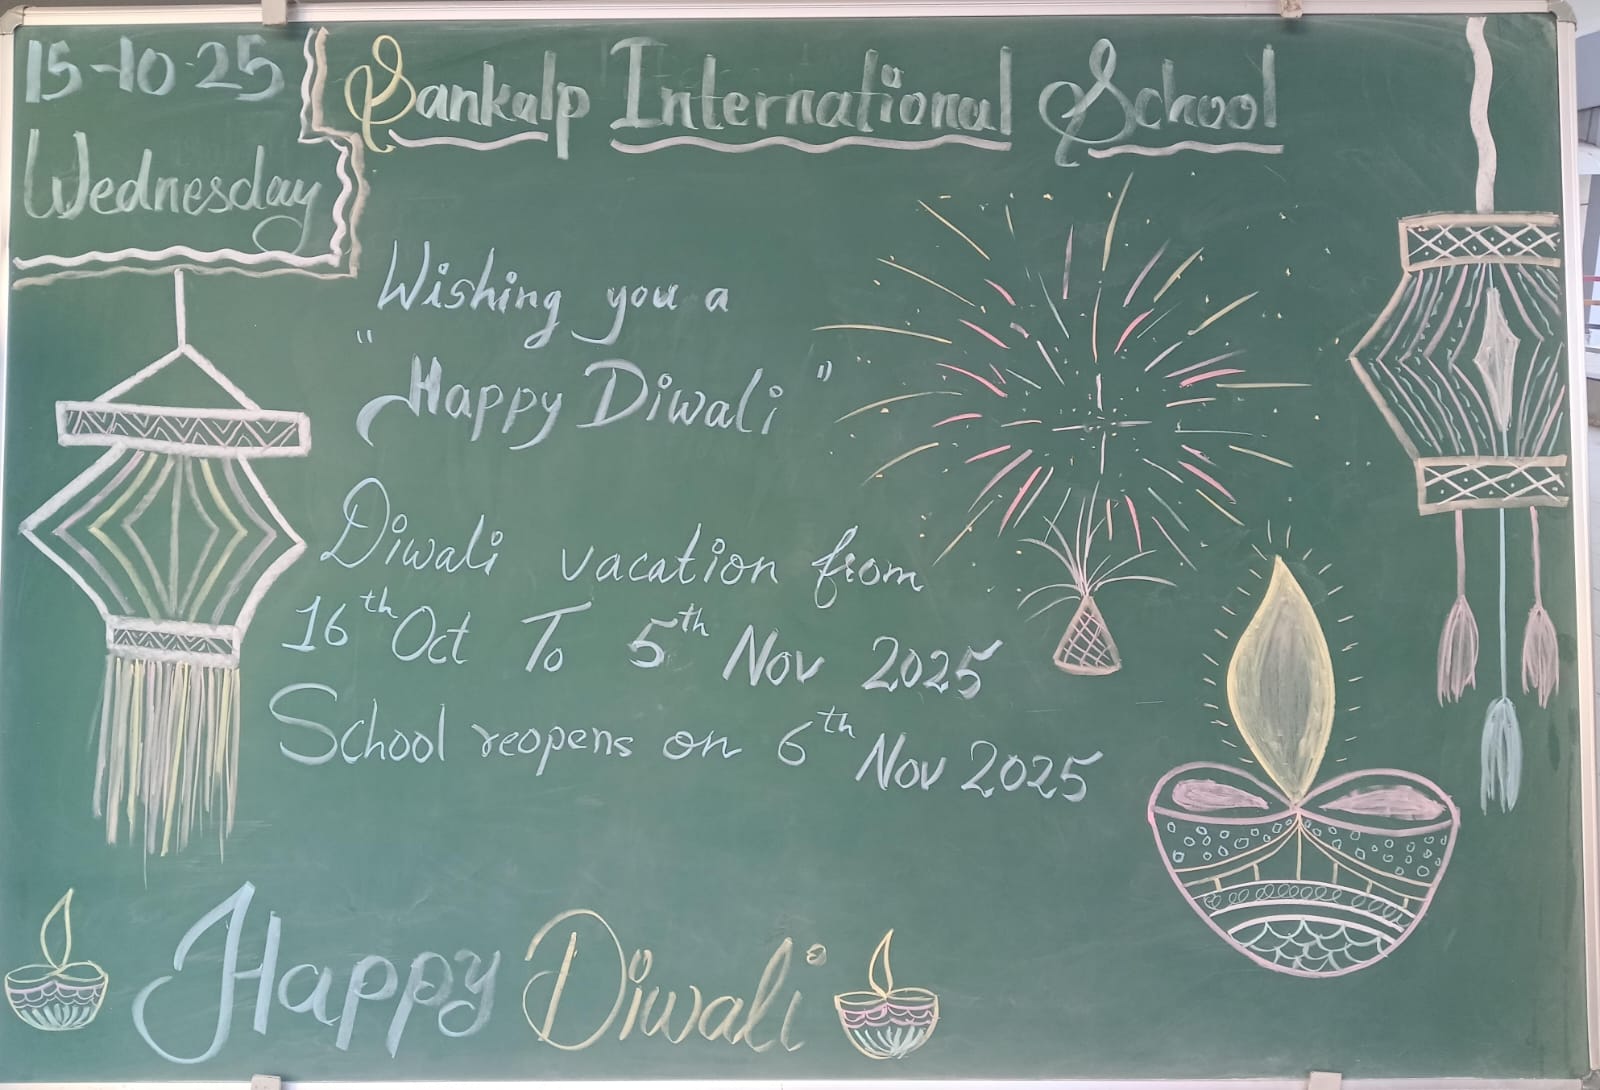 15-10-25
Wednesday
Sankalp International School
Wishing you a
" Happy Diwali "
Diwali vacation from
16th Oct To 5th Nov 2025
School reopens on 6th Nov 2025
Happy Diwali